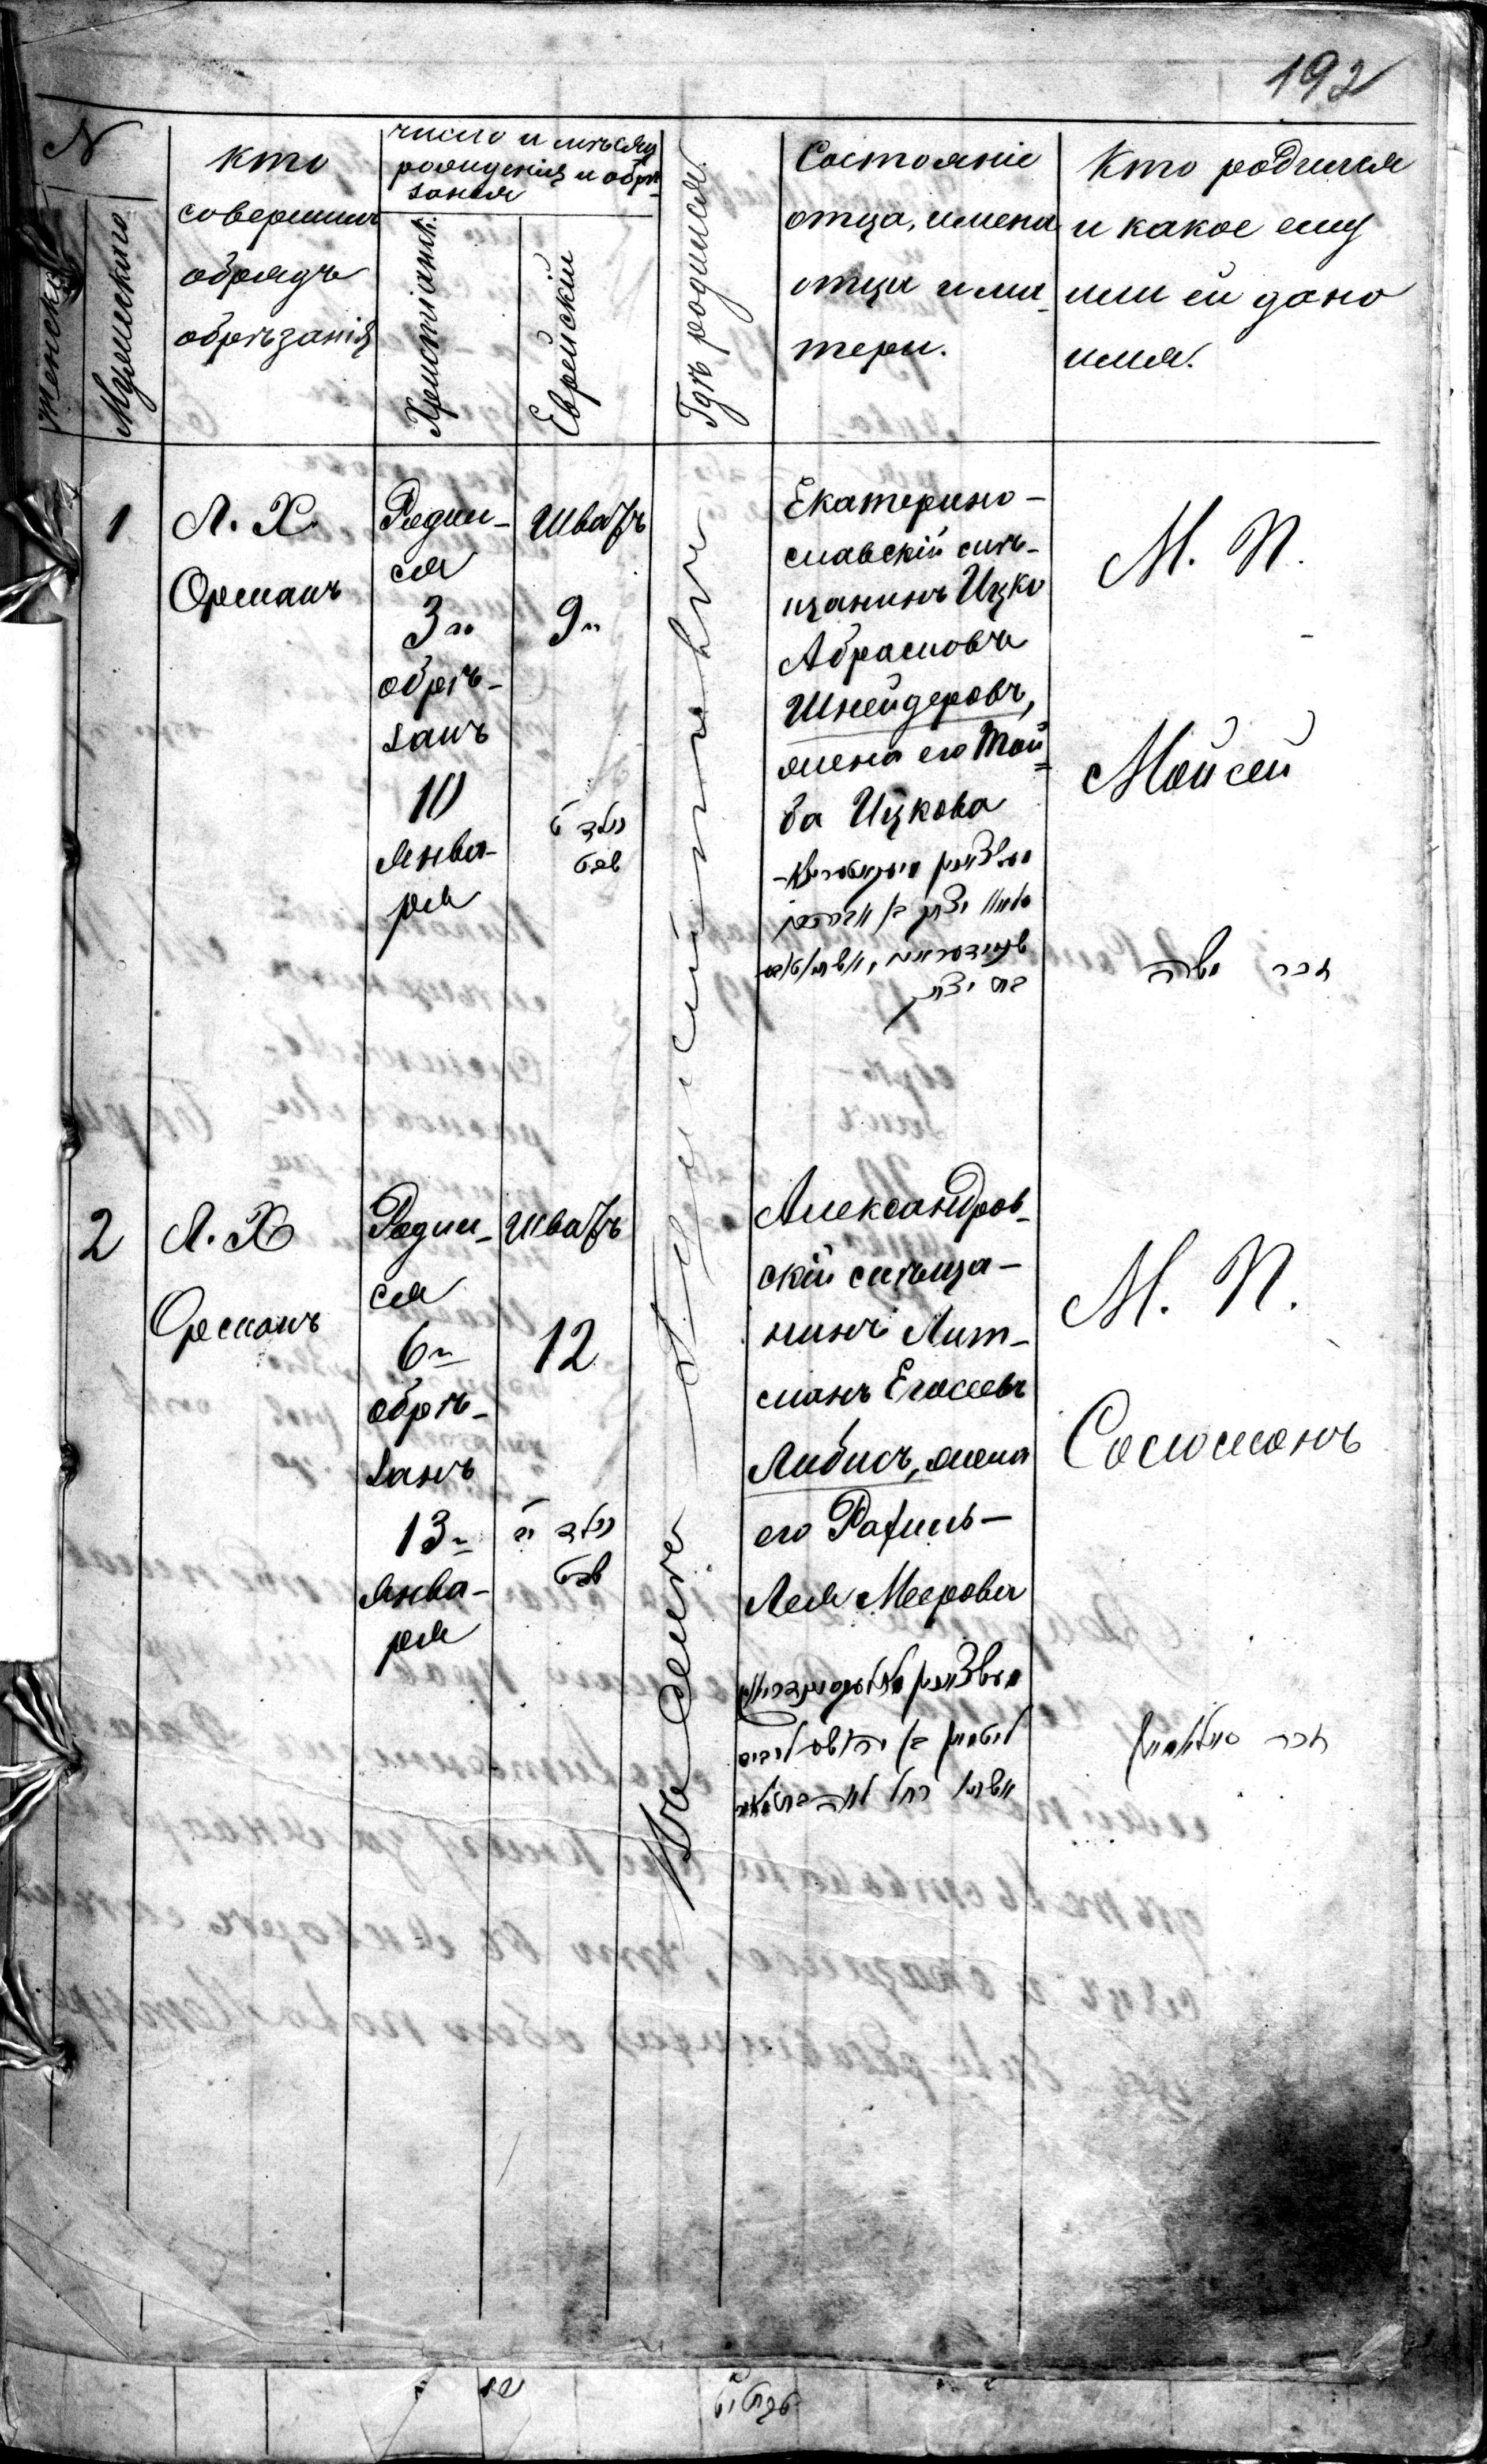 192
N
Женскаго
Мужескаго
кто
совершилъ
обрядъ
обрѣзанія
число и мѣсяцъ
рожденія и обрѣ-
занія
Христіанск.
Еврейскій
Гдѣ родился
Состояніе
отца, имена
отца и ма-
тери.
Кто родился
и какое ему
или ей дано
имя.
1
Л. Х.
Орманъ
Родил-
ся
3го
обрѣ-
занъ
10
Янва-
ря
Шватъ
9го
נולד ט
שבט
Екатерино-
славскій мѣ-
щанинъ Ицко
Абрамовъ
Шнейдеровъ,
жена его Тай
ба Ицкова
יצחק בן אברהם
בת יצחק
М. П.
Мойсей
זכר משה
2
Л. Х
Орманъ
Родил-
ся
6го
обрѣ-
занъ
13го
Янва-
ря
Шватъ
12
נולד יב
שבט
Александров-
скій мѣща-
нинъ Лит-
манъ Егосеевъ
Либисъ, жена
его Рахиль-
Лея Меерова
ליטמאן בן
רחל לאה
М. П.
Соломонъ
זכר
Въ селѣ